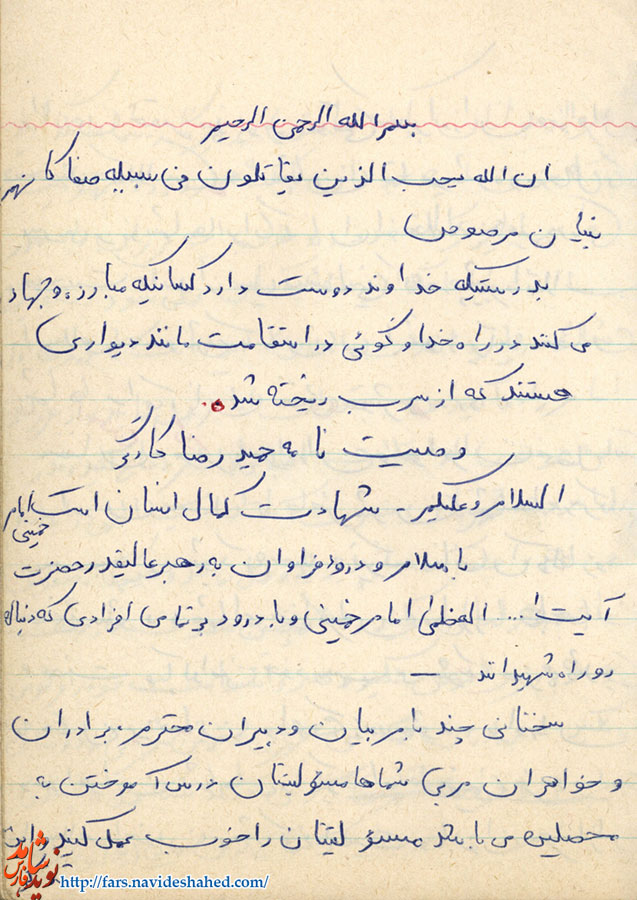 بسم الله الرحمن الرحیم
ان الله یحب الذین یقاتلون فی سبیله صفا کا نهم
بنیان مرصوص
بدرستیکه خداوند دوست دارد کسانیکه مبارزه و جهاد
می کنند در راه خدا و گوئی در استقامت مانند دیواری
هستند که از سرب ریخته شده.
وصیت نامه حمید رضا کارگر
السلام و علیکم - شهادت کمال انسان است امام خمینی
با سلام و درود فراوان به رهبر عالیقدر حضرت
آیت ا... العظمی امام خمینی و با درود بر تمامی افرادی که دنباله
رو راه شهیدانند —
سخنانی چند با مربیان و دبیران محترم، برادران
و خواهران مربی شماها مسئولیتتان درس آموختن به
محصلین می باشد مسئولیتتان را خوب عمل کنید و این
نوید شاهد فارس
http://fars.navideshahed.com/